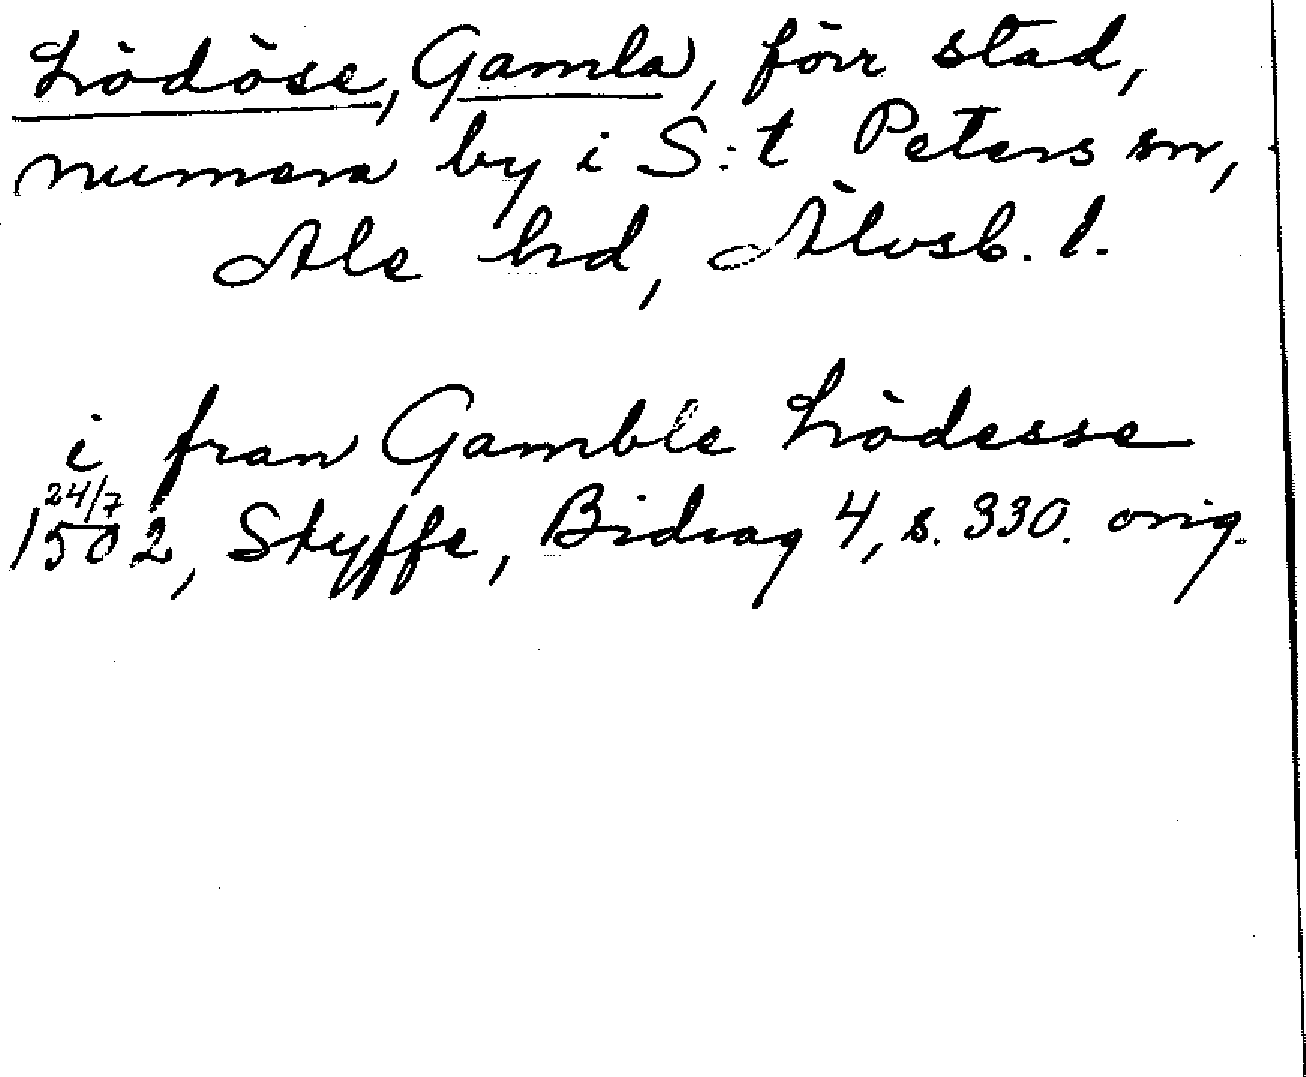 Lödöse, Gamla, förr stad,
numera by i S:t Peters sn,
Ale hd, Älvsb. l.
i fran Gamble Lödesse
24/7
1502, Styffe, Bidrag 4, s. 330. orig.